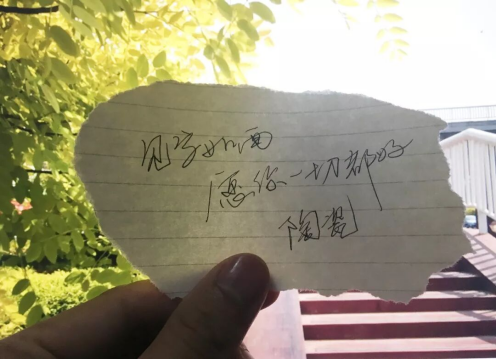 见字如面
愿你一切都好
陶瓷